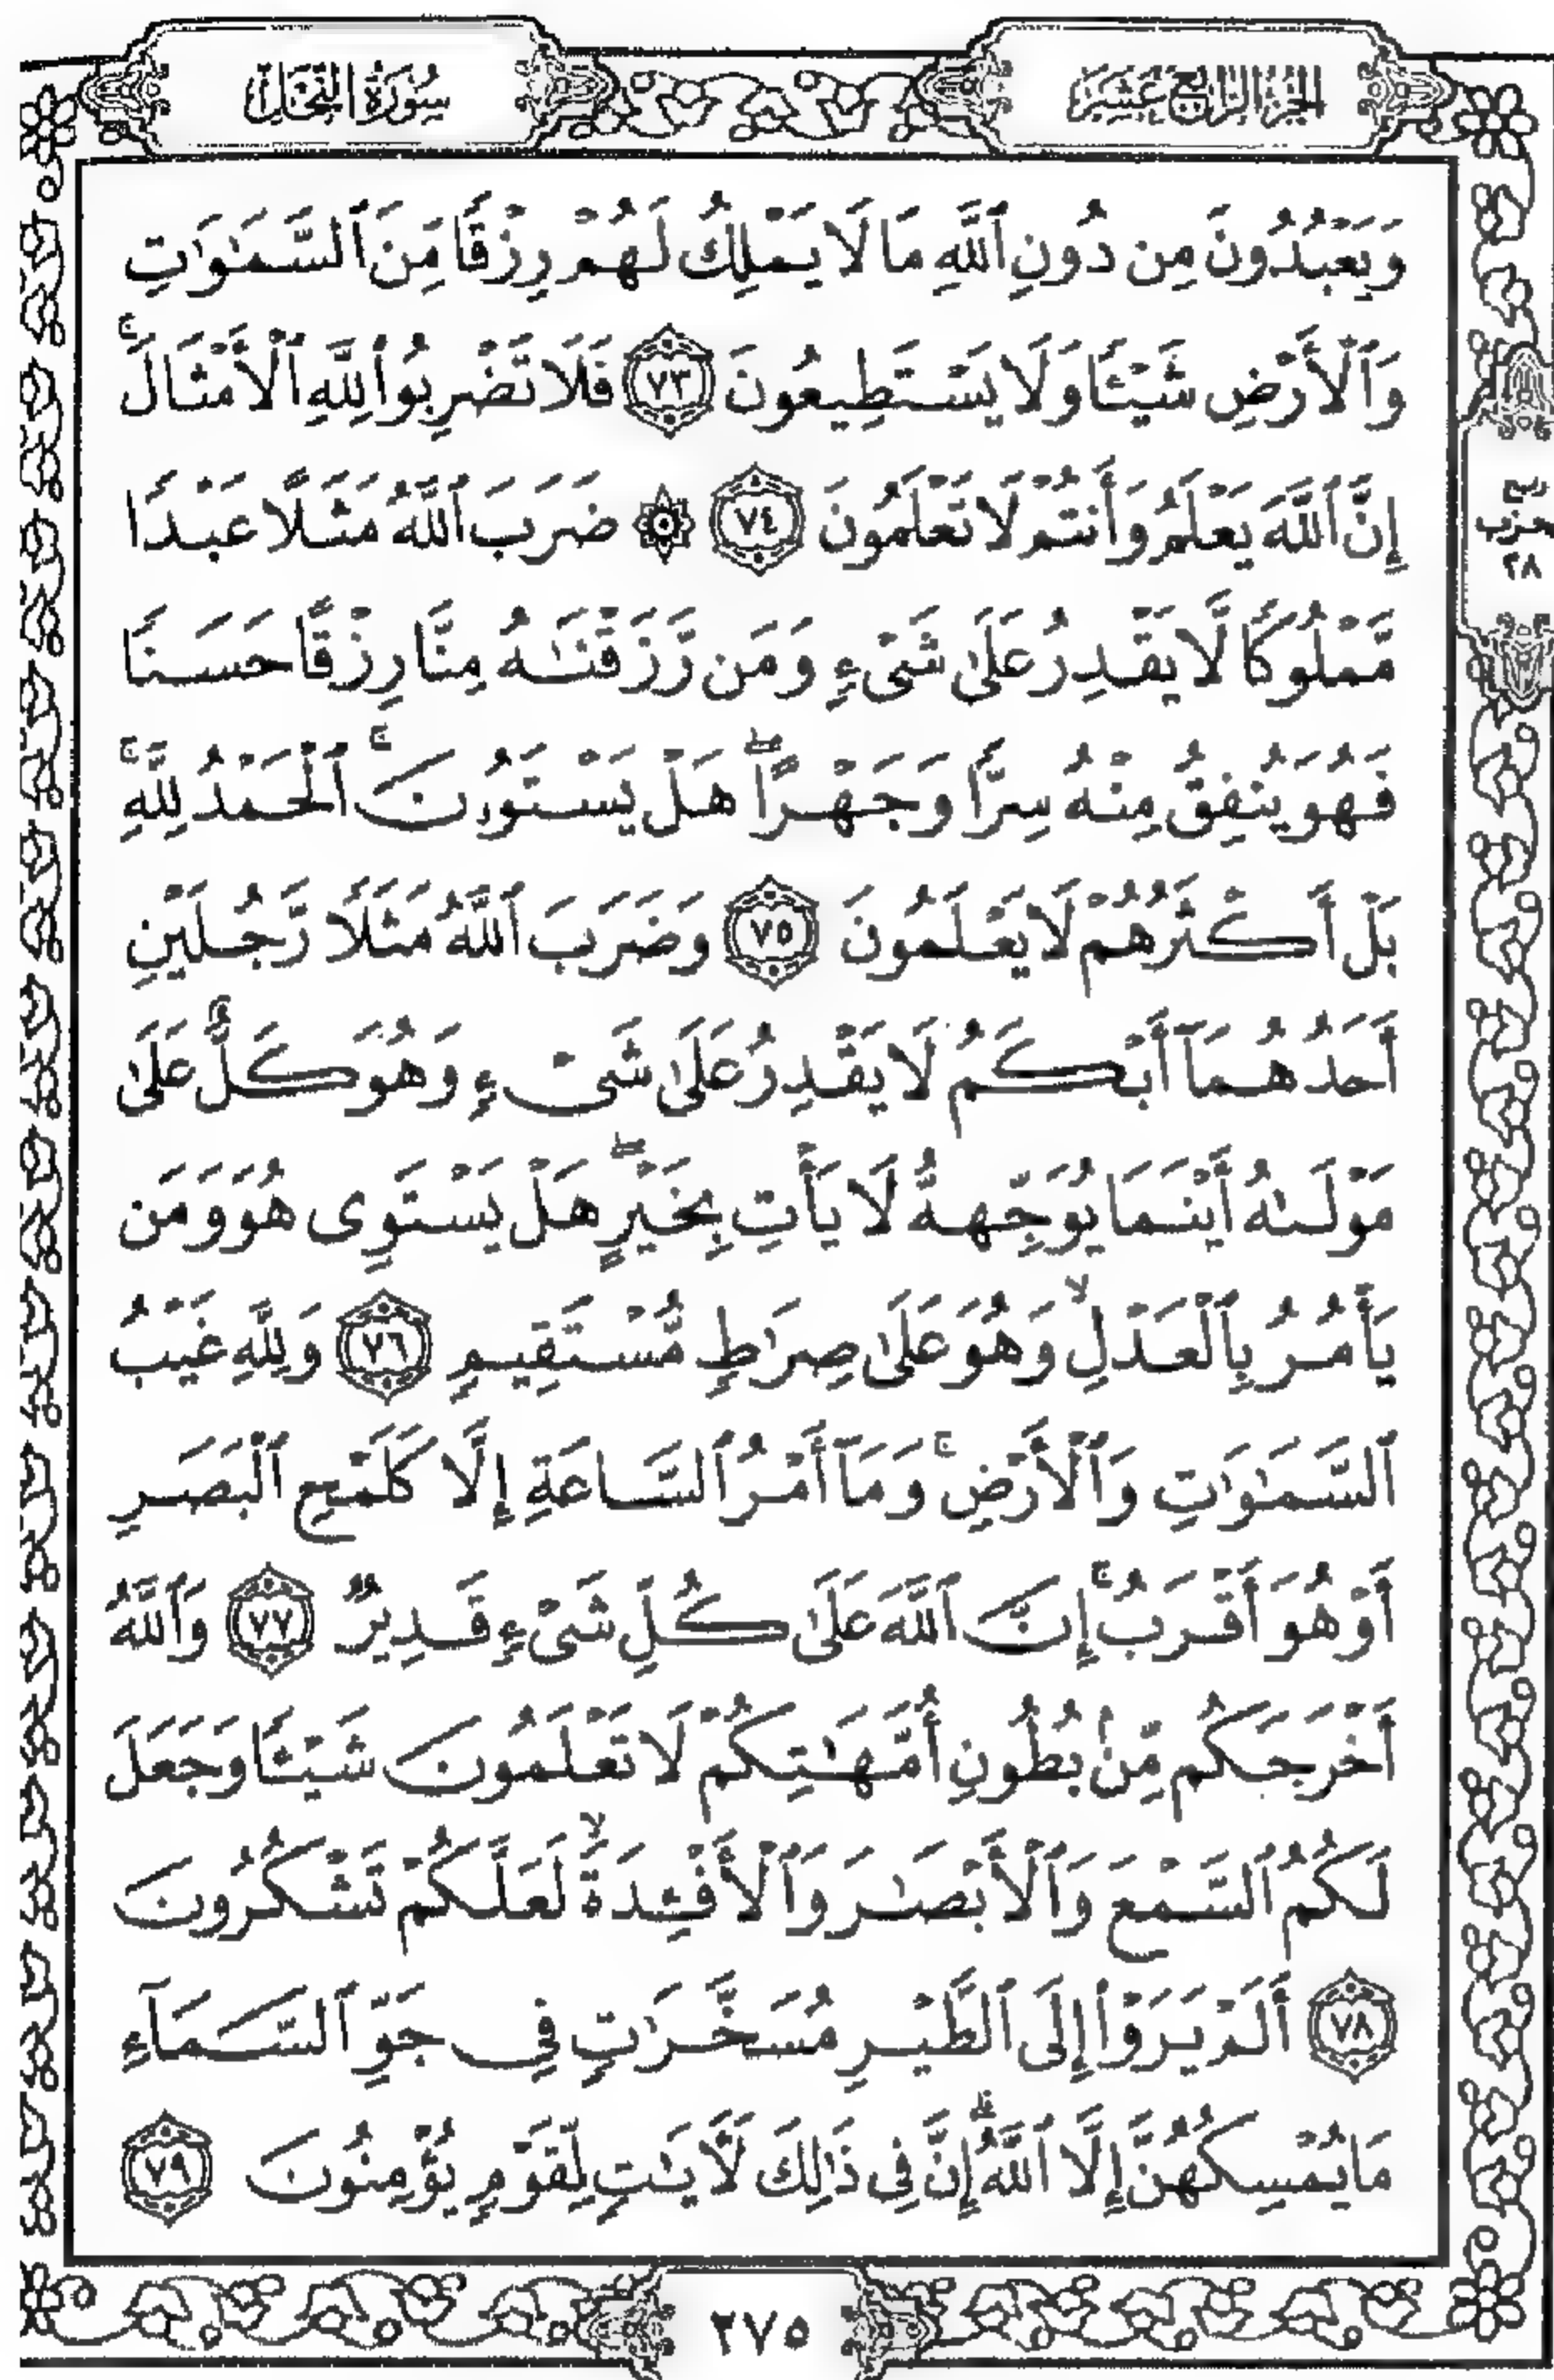 الجزء الرابع عشر
سورة النحل
وَيَعْبُدُونَ مِن دُونِ ٱللَّهِ مَا لَا يَمْلِكُ لَهُمْ رِزْقًا مِّنَ ٱلسَّمَٰوَٰتِ
وَٱلْأَرْضِ شَيْـًٔا وَلَا يَسْتَطِيعُونَ ٧٣ فَلَا تَضْرِبُوا۟ لِلَّهِ ٱلْأَمْثَالَ ۚ
إِنَّ ٱللَّهَ يَعْلَمُ وَأَنتُمْ لَا تَعْلَمُونَ ٧٤ ۞ ضَرَبَ ٱللَّهُ مَثَلًا عَبْدًا
مَّمْلُوكًا لَّا يَقْدِرُ عَلَىٰ شَىْءٍ وَمَن رَّزَقْنَٰهُ مِنَّا رِزْقًا حَسَنًا
فَهُوَ يُنفِقُ مِنْهُ سِرًّا وَجَهْرًا ۖ هَلْ يَسْتَوُۥنَ ۚ ٱلْحَمْدُ لِلَّهِ ۚ
بَلْ أَكْثَرُهُمْ لَا يَعْلَمُونَ ٧٥ وَضَرَبَ ٱللَّهُ مَثَلًا رَّجُلَيْنِ
أَحَدُهُمَآ أَبْكَمُ لَا يَقْدِرُ عَلَىٰ شَىْءٍ وَهُوَ كَلٌّ عَلَىٰ
مَوْلَىٰهُ أَيْنَمَا يُوَجِّههُّ لَا يَأْتِ بِخَيْرٍ ۖ هَلْ يَسْتَوِى هُوَ وَمَن
يَأْمُرُ بِٱلْعَدْلِ ۙ وَهُوَ عَلَىٰ صِرَٰطٍ مُّسْتَقِيمٍ ٧٦ وَلِلَّهِ غَيْبُ
ٱلسَّمَٰوَٰتِ وَٱلْأَرْضِ ۚ وَمَآ أَمْرُ ٱلسَّاعَةِ إِلَّا كَلَمْحِ ٱلْبَصَرِ
أَوْ هُوَ أَقْرَبُ ۚ إِنَّ ٱللَّهَ عَلَىٰ كُلِّ شَىْءٍ قَدِيرٌ ٧٧ وَٱللَّهُ
أَخْرَجَكُم مِّنۢ بُطُونِ أُمَّهَٰتِكُمْ لَا تَعْلَمُونَ شَيْـًٔا وَجَعَلَ
لَكُمُ ٱلسَّمْعَ وَٱلْأَبْصَٰرَ وَٱلْأَفْـِٔدَةَ ۙ لَعَلَّكُمْ تَشْكُرُونَ
٧٨ أَلَمْ يَرَوْا۟ إِلَى ٱلطَّيْرِ مُسَخَّرَٰتٍ فِى جَوِّ ٱلسَّمَآءِ
مَا يُمْسِكُهُنَّ إِلَّا ٱللَّهُ ۗ إِنَّ فِى ذَٰلِكَ لَـَٔايَٰتٍ لِّقَوْمٍ يُؤْمِنُونَ ٧٩
ربع
حزب
٢٨
٢٧٥